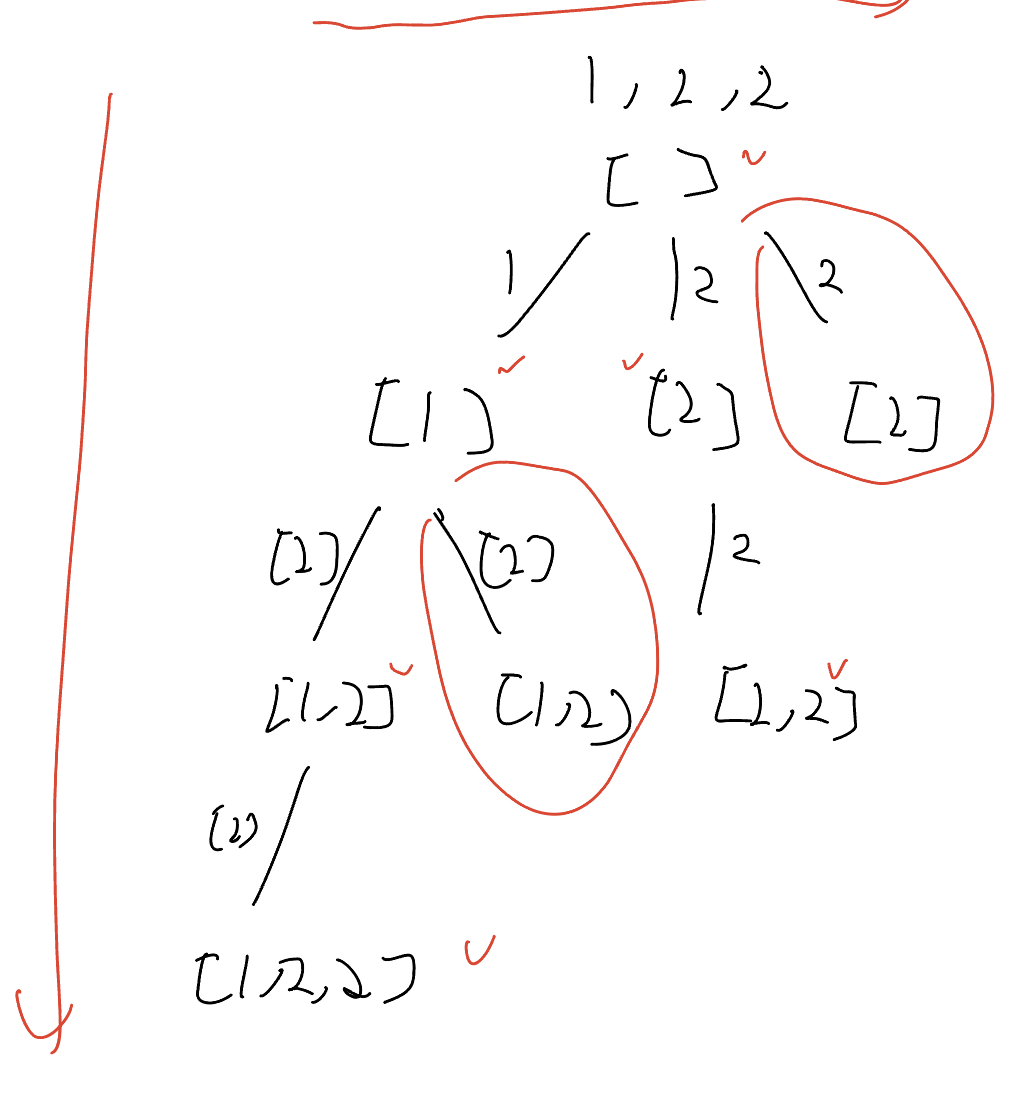 1, 2, 2
[ ]
1 2 2
[1] [2] [2]
[2] [2] 2
[1,2] [1,2) [2,2]
[2)
[1,2,2]